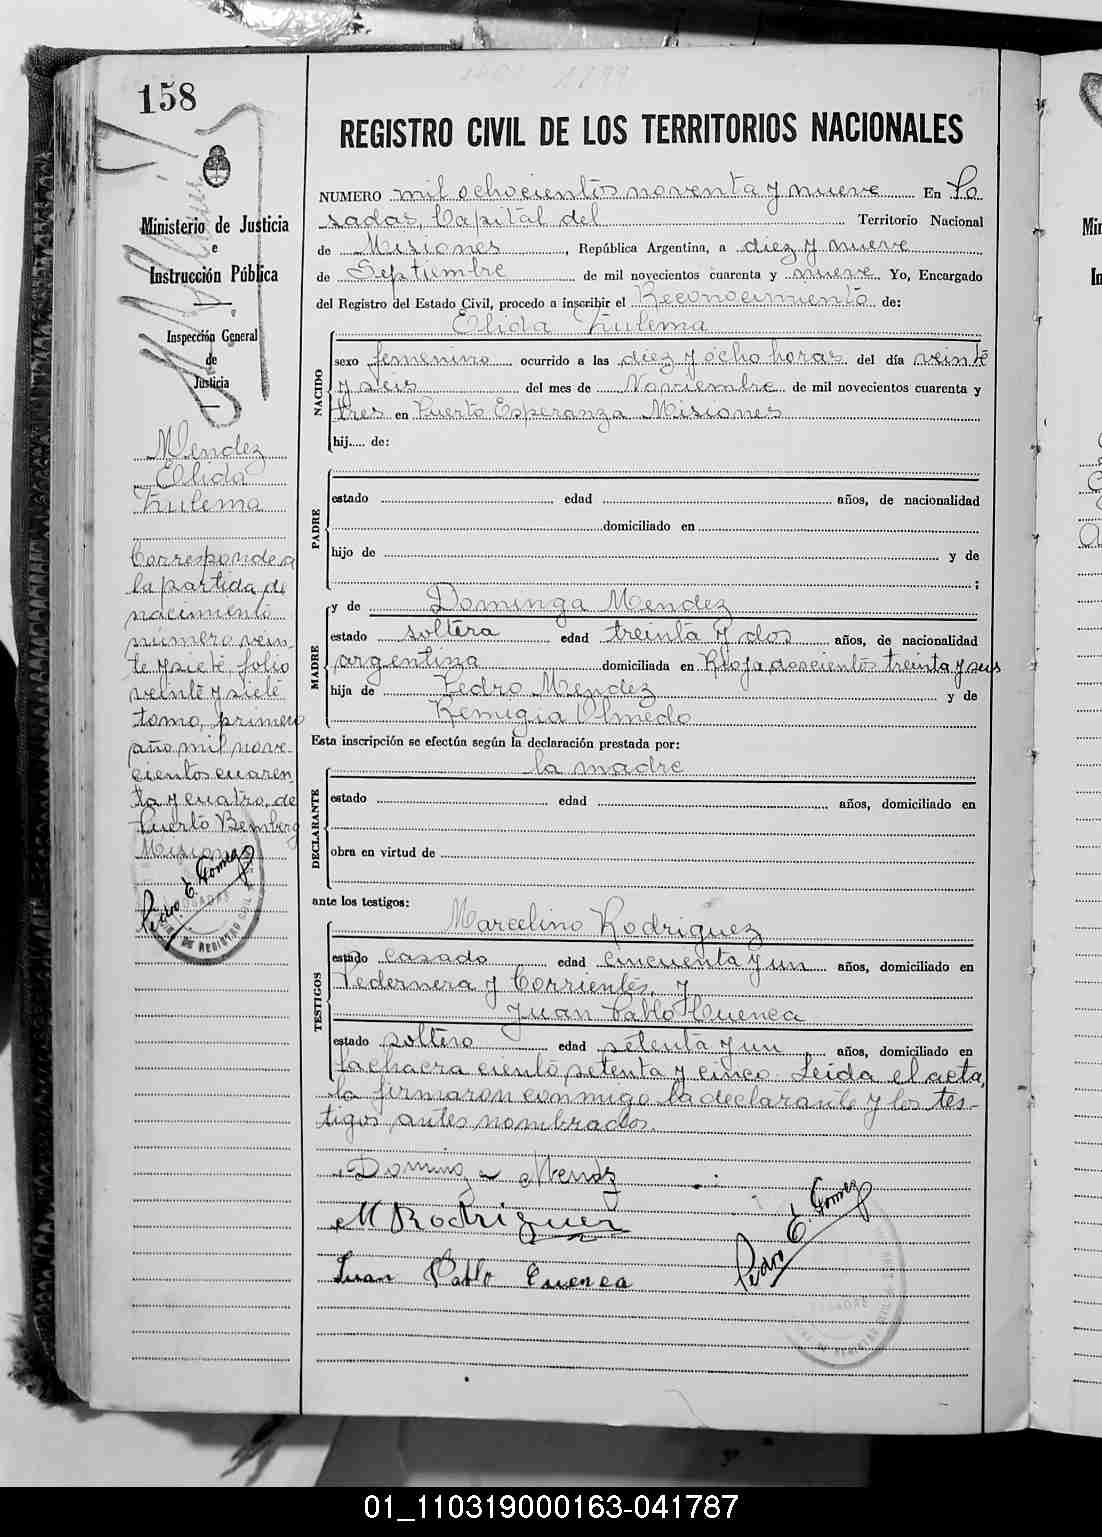 158
REGISTRO CIVIL DE LOS TERRITORIOS NACIONALES
Ministerio de Justicia
e
Instrucción Pública
Inspección General
de
Justicia
Mendez
Elida
Zulema
Corresponde a
la partida de
nacimiento
número vein-
te y siete folio
veinte y siete
tomo, primero
año mil nove-
cientos cuaren
ta y cuatro, de
Puerto Bemberg
Misiones
Pedro E. Gomez
DE REGISTRO CIVIL
NUMERO mil ochocientos noventa y nueve En Po
sadas, Capital del Territorio Nacional
de Misiones, República Argentina, a diez y nueve
de Septiembre de mil novecientos cuarenta y nueve Yo, Encargado
del Registro del Estado Civil, procedo a inscribir el Reconocimiento de:
Elida Zulema
NACIDO
sexo femenino ocurrido a las diez y ocho horas del día veinte
y seis del mes de Noviembre de mil novecientos cuarenta y
tres en Puerto Esperanza Misiones
hij.... de:
PADRE
estado edad años, de nacionalidad
domiciliado en
hijo de y de
;
MADRE
y de Dominga Mendez
estado soltera edad treinta y dos años, de nacionalidad
argentina domiciliada en Rioja doscientos treinta y seis
hija de Pedro Mendez y de
Remigia Olmedo
Esta inscripción se efectúa según la declaración prestada por:
la madre
DECLARANTE
estado edad años, domiciliado en
obra en virtud de
ante los testigos:
TESTIGOS
Marcelino Rodriguez
estado casado edad cincuenta y un años, domiciliado en
Pedernera y Corrientes, y
Juan Pablo Cuenca
estado soltero edad setenta y un años, domiciliado en
la chacra ciento setenta y cinco. Leida el acta,
la firmaron conmigo la declarante y los tes-
tigos antes nombrados.
Dominga Mendz
M Rodriguez
Juan Pablo Cuenca
Pedro E. Gomez
01_110319000163-041787